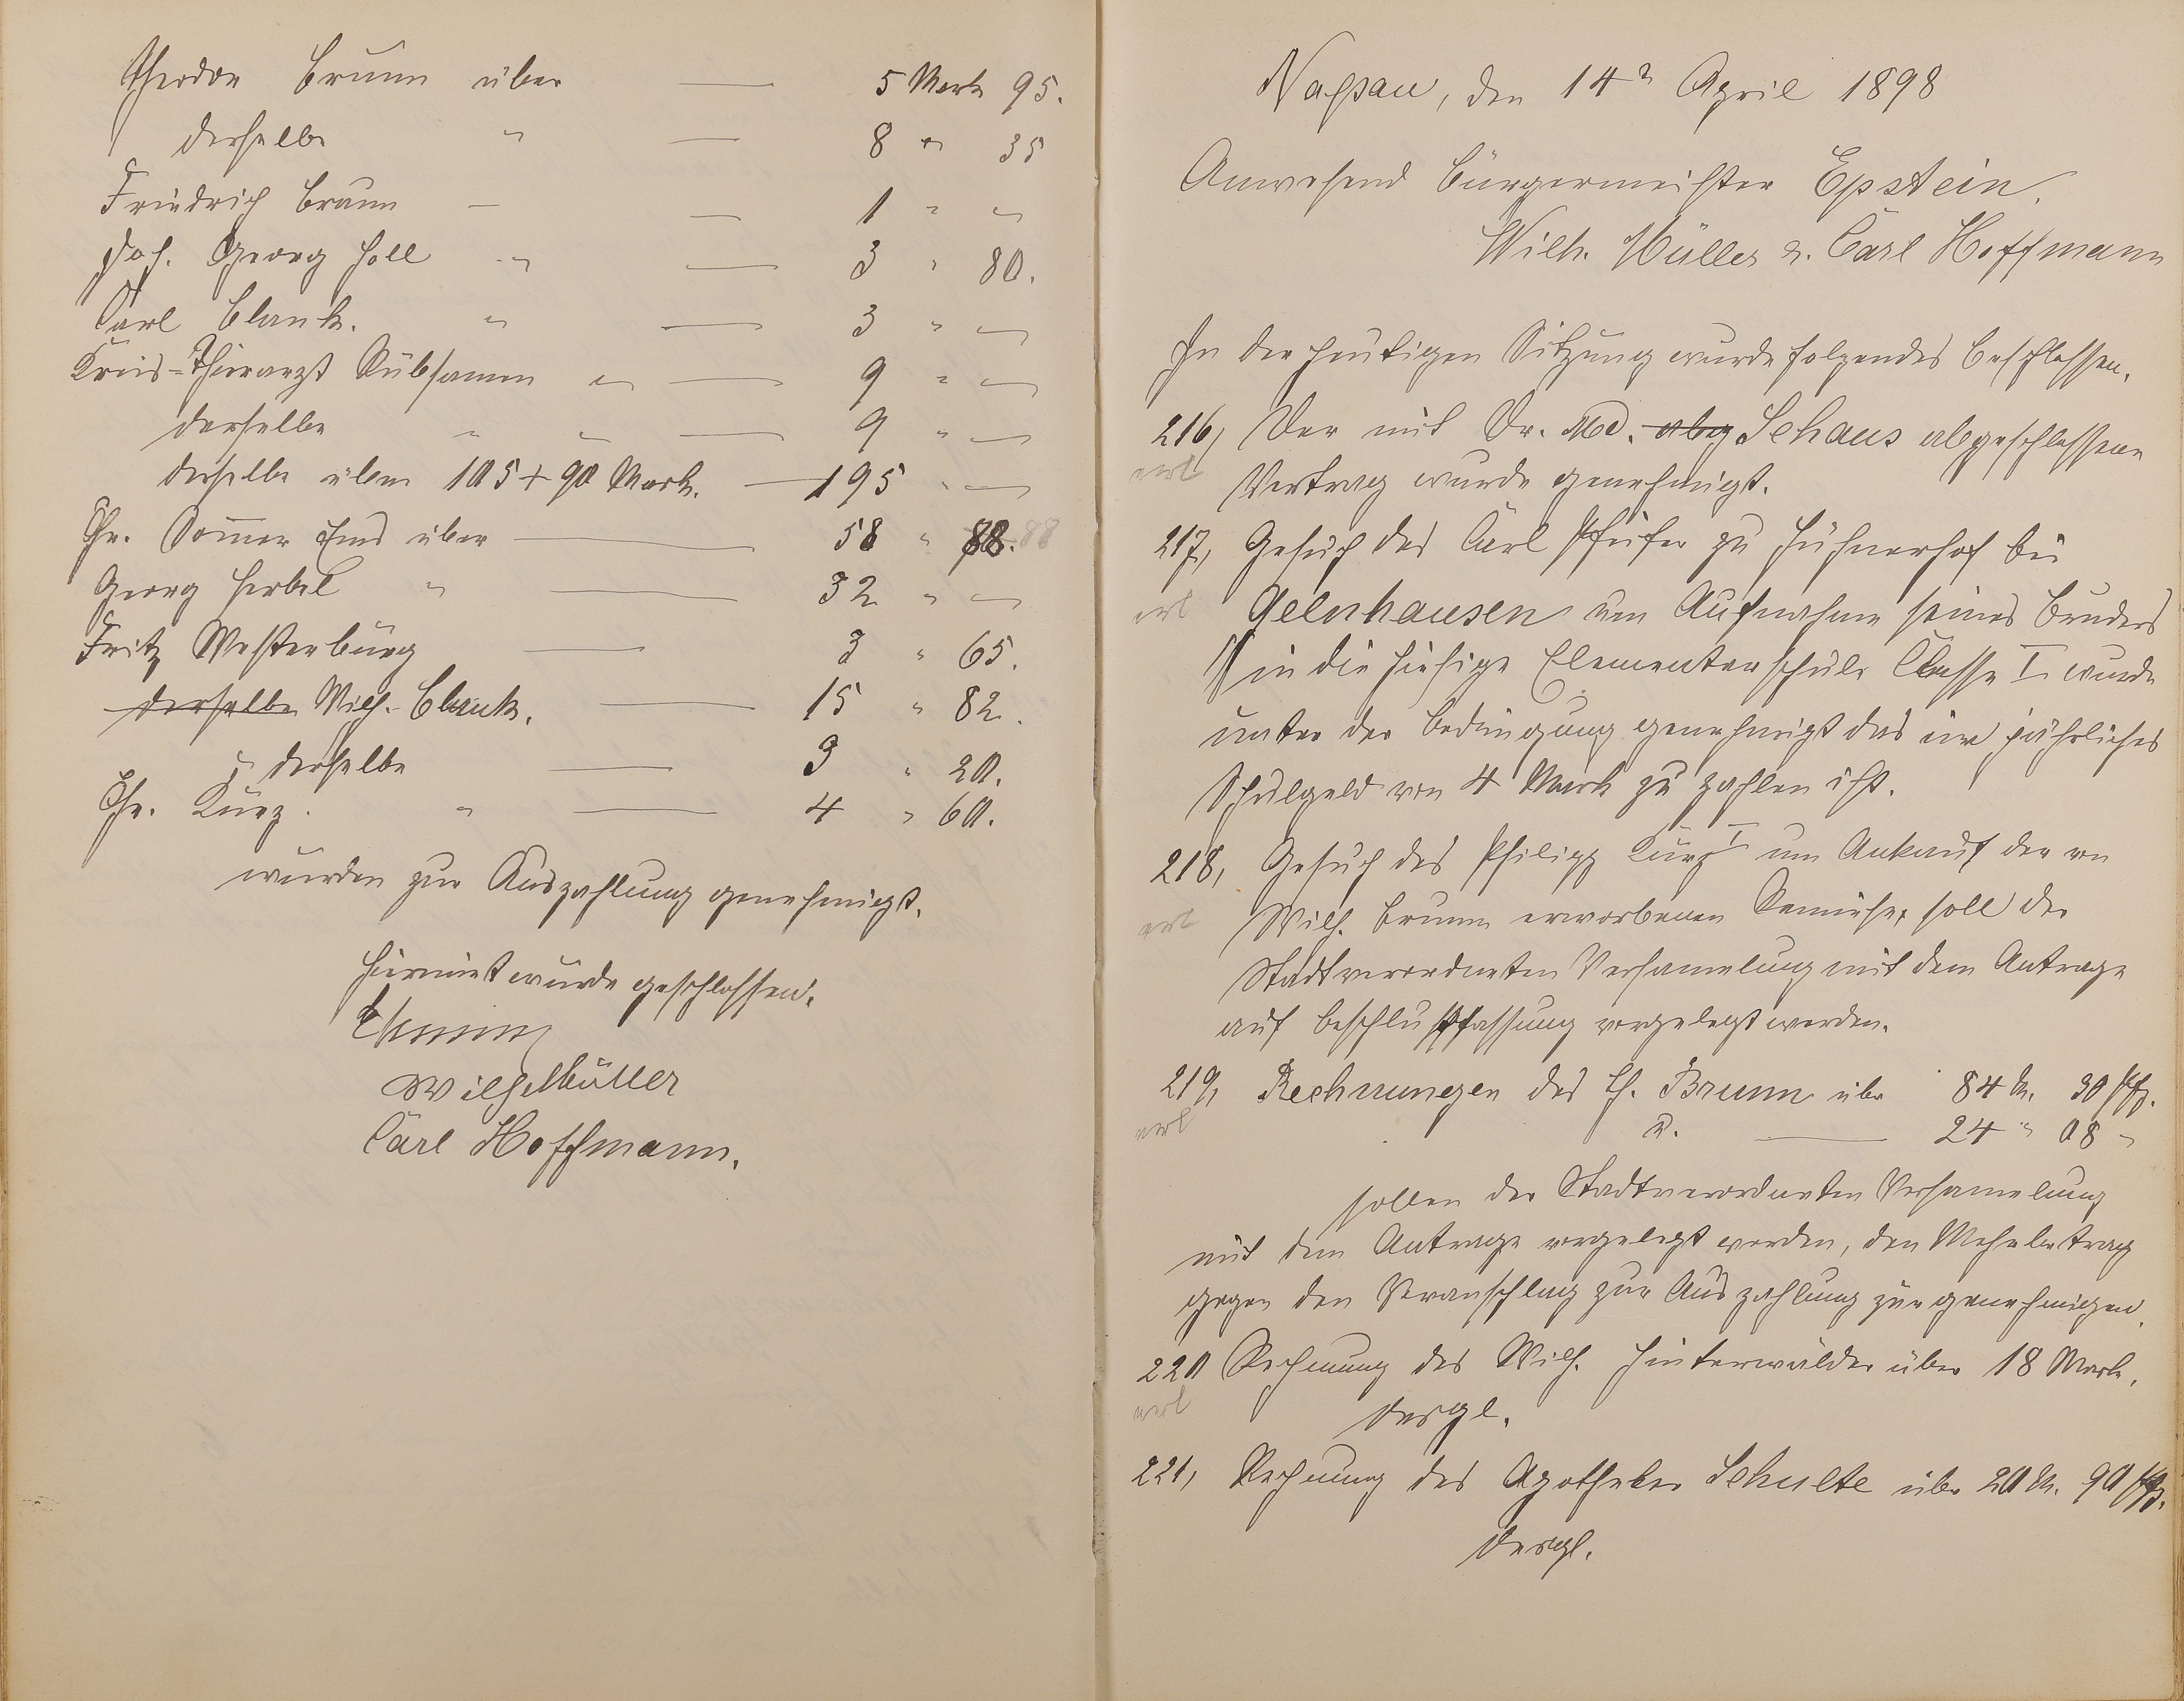 Theodor Brunn über — 5 Mark 95.
derselbe " — 8 " 35
Friedrich Braun — — 1 " "
Joh. Georg Holl " — 3 " 80.
Carl Blank. " — 3 " "
Kreis-Thierarzt Rübsamen " — 9 " "
derselbe " " — 9 " "
derselbe über 105 + 90 Mark. — 195 " "
Chr. Sommer Ems über — 58 " 88. 88
Georg Herbel " — 32 " "
Fritz Westerburg — 3 " 65.
derselbe Wilh. Blank. — 15 " 82.
derselbe — 3 " 20.
Chr. Kurz. " — 4 " 60.
wurden zur Auszahlung genehmigt.
Hiermit wurde geschlossen.
Wilh Müller
Carl Hoffmann.
Nassau, den 14n April 1898
Anwesend Bürgermeister Epstein.
Wilh. Müller u. Carl Hoffmann
In der heutigen Sitzung wurde folgendes beschlossen.
216, Der mit Dr. Md. abg Schaus abgeschlossene
erl Vertrag wurde genehmigt.
217, Gesuch des Carl Pfeifer zu Hühnerhof bei
erl Gelnhausen um Aufnahme seines Bruders
in die hiesige Elementarschule Classe I. wurde
unter der Bedingung genehmigt das ein jährliches
Schulgeld von 4 Mark zu zahlen ist.
218, Gesuch des Philipp Kurz I um Ankauf der von
erl Wilh. Brunn erworbenen Remiese, soll der
Stadtverordneten Versamelung mit dem Antrage
auf Beschlußfassung vorgelegt werden.
219, Rechnungen des Th. Brunn über 84 M. 30 Pfg.
erl u. — 24 " 08 "
sollen der Stadtverordneten Versamelung
mit dem Antrage vorgelegt werden, den Mehrbetrag
gegen den Voranschlag zur Auszahlung zu genehmigen.
220 Rechnung des Wilh. Hinterwälder über 18 Mark.
erl desgl.
221, Rechnung des Apotheker Schulte über 20 M. 90 Pfg.
desgl.